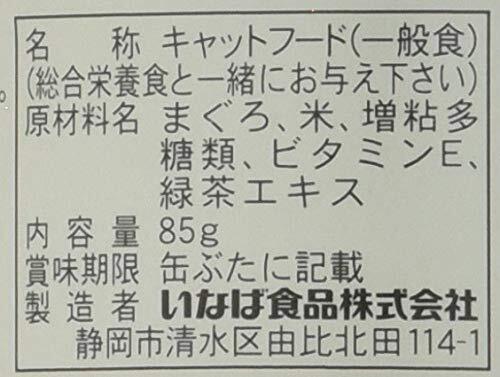 名称 キャットフード(一般食)
(総合栄養食と一緒にお与え下さい)
原材料名 まぐろ、米、増粘多
糖類、ビタミンE、
緑茶エキス
内容量 85g
賞味期限 缶ぶたに記載
製造者 いなば食品株式会社
静岡市清水区由比北田114-1